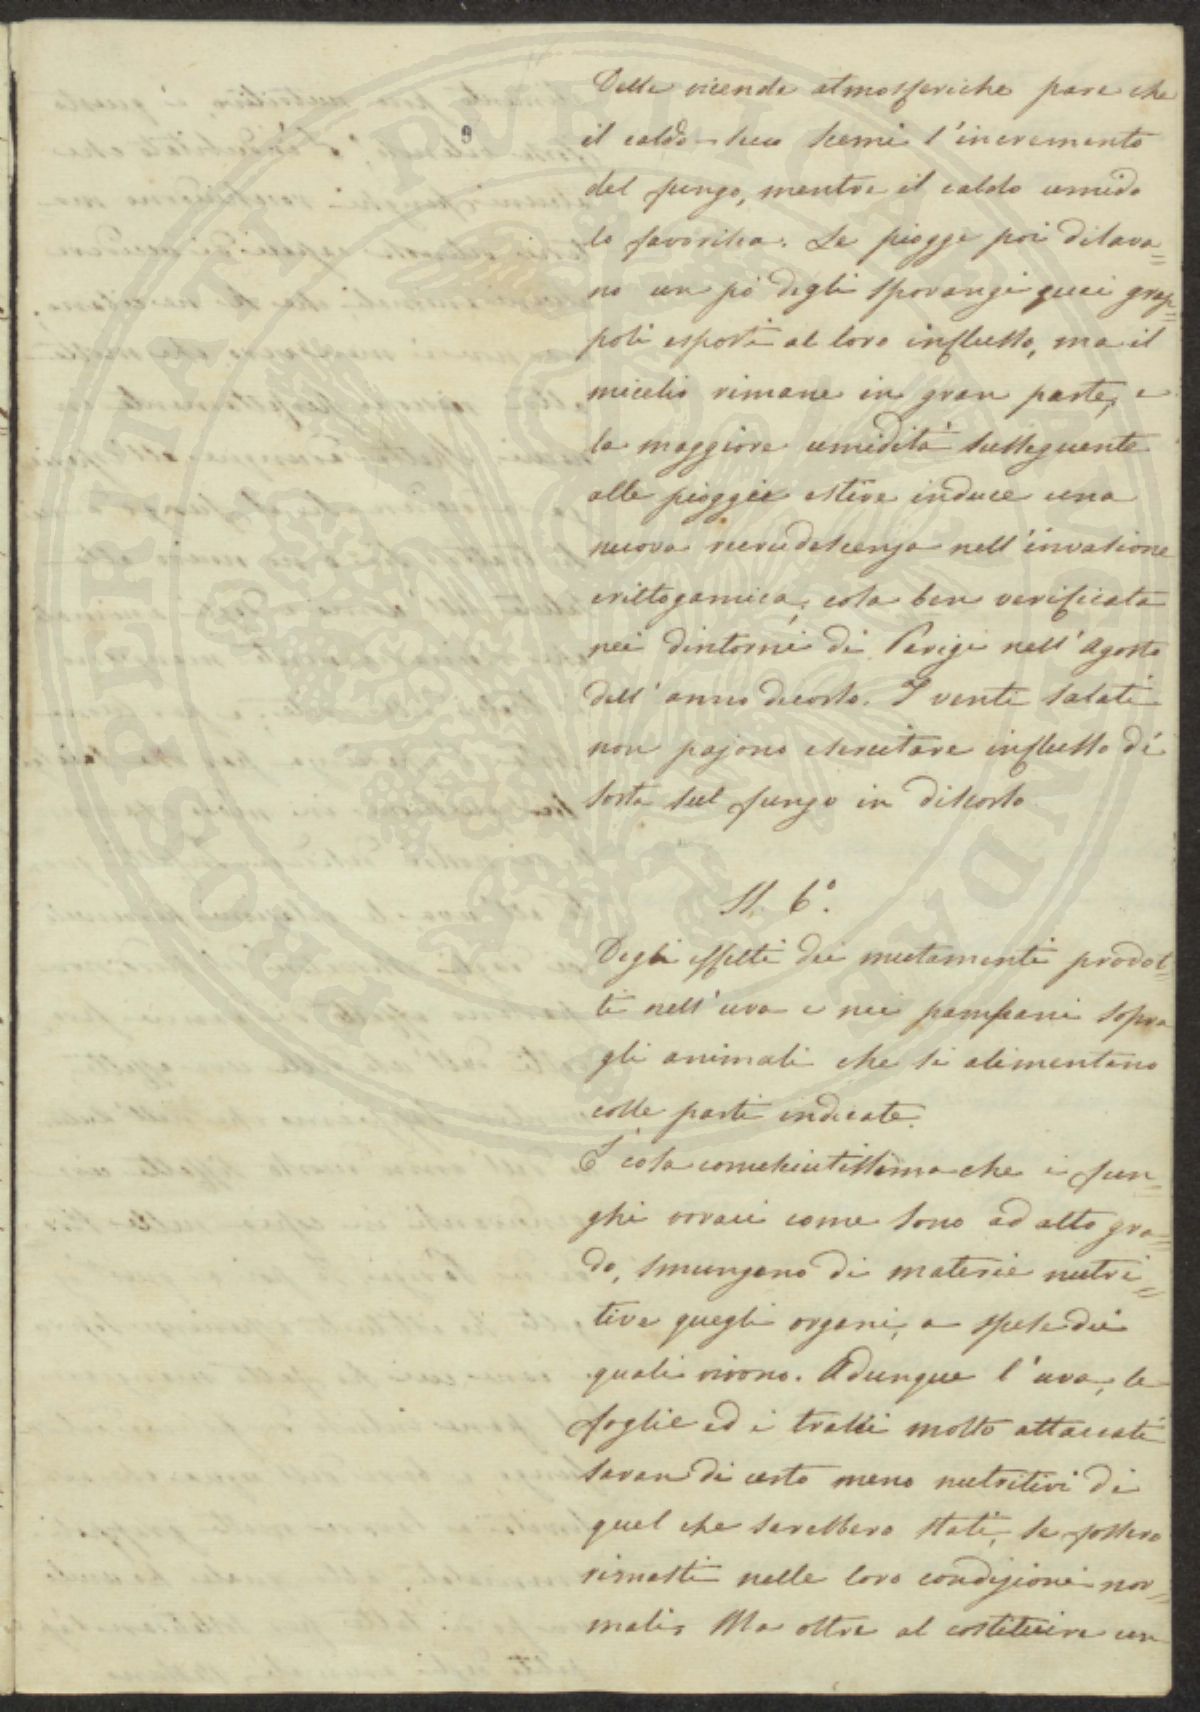 9
Delle vicende atmosferiche pare che
il caldo-secco scemi l'incremento
del fungo, mentre il caldo umido
lo favorisca. Le piogge poi dilava=
no un pò degli sporangi quei grap=
poli esposti al loro influsso, ma il
micelio rimane in gran parte, e
la maggiore umidità susseguente
alle pioggie estive induce una
nuova recrudescenza nell'invasione
crittogamica, cosa ben verificata
nei dintorni di Parigi nell'Agosto
dell'anno decorso. I venti salati
non pajono esercitare influsso di
sorta sul fungo in discorso
§. 6.°
Degli effetti dei mutamenti prodot=
ti nell'uva e nei pampani sopra
gli animali che si alimentano
colle parti indicate.
È cosa conosciutissima che i fun=
ghi voraci come sono ad alto gra=
do, smungono di materie nutri=
tive quegli organi, a spese dei
quali vivono. Adunque l'uva, le
foglie ed i tralci molto attaccati
saran di certo meno nutritivi di
quel che sarebbero stati, se fossero
rimasti nelle loro condizioni nor=
mali. Ma oltre al costituire un
PROSPERITATI PVBLICAE